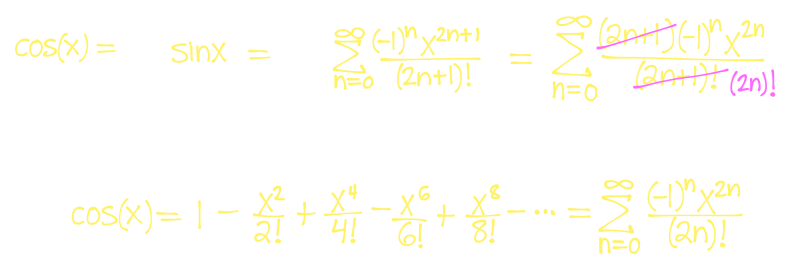 cos(x) = sinx = ∑_{n=0}^{∞} \frac{(-1)^n x^{2n+1}}{(2n+1)!} = ∑_{n=0}^{∞} \frac{(2n+1)(-1)^n x^{2n}}{(2n+1)! (2n)!}
cos(x) = 1 - \frac{x^2}{2!} + \frac{x^4}{4!} - \frac{x^6}{6!} + \frac{x^8}{8!} - ... = ∑_{n=0}^{∞} \frac{(-1)^n x^{2n}}{(2n)!}